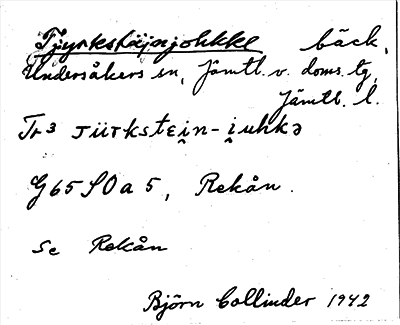 Tjyrkstäjnjohkke bäck,
Undersåkers sn, Jämtl. v. doms. tg,
Jämtl. l.
Tr3 τürkstei̯n-i̯uhkə
G65 SO a 5, Rekån.
Se Rekån
Björn Collinder 1942